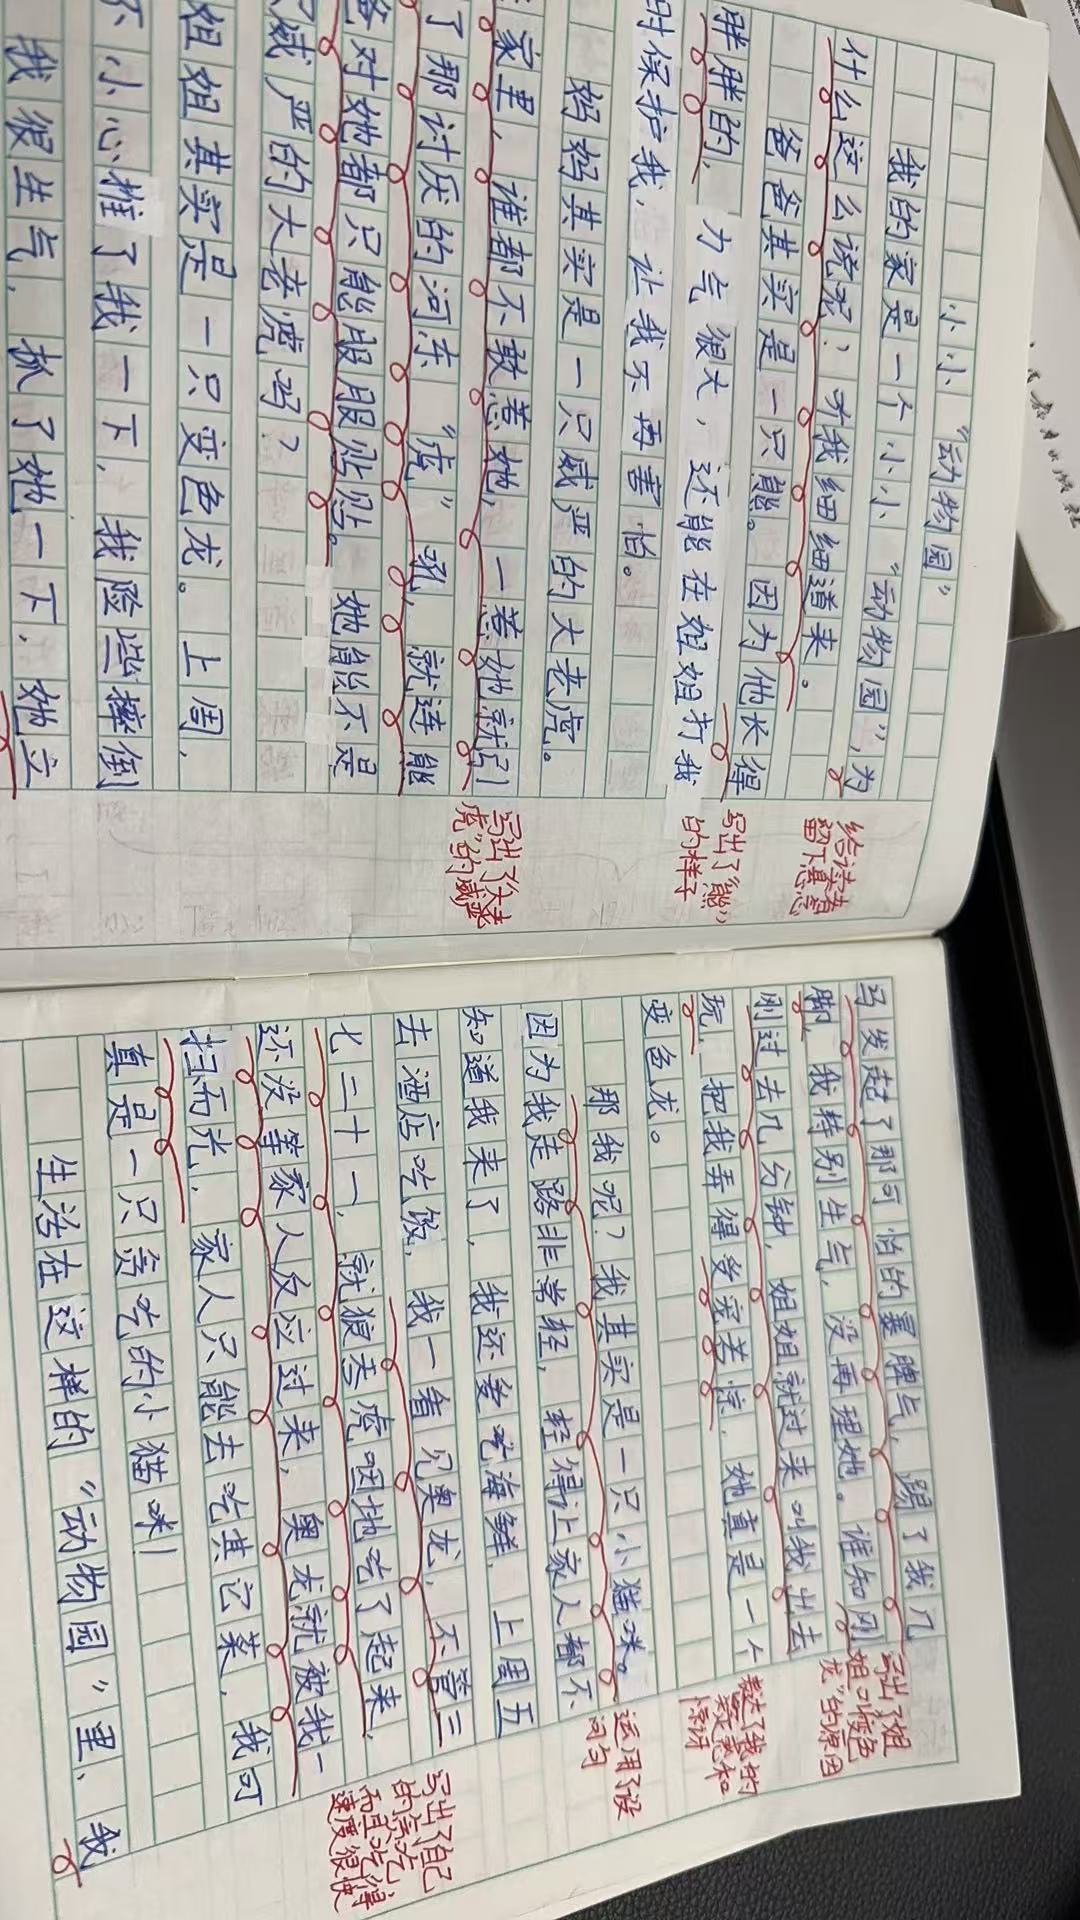 小小“动物园”
我的家是一个小小“动物园”,为
什么这么说呢?听我细细道来。
爸爸其实是一只熊。因为他长得
胖胖的,力气很大,还能在姐姐打我
时保护我,让我不再害怕。
妈妈其实是一只威严的大老虎。
家里,谁都不敢惹她,一惹她就引
了那讨厌的河东“虎”吼,就连能
爸对她都只能服服贴贴。她能不是
威严的大老虎吗?
姐姐其实是一只变色龙。上周,
不小心推了我一下,我险些摔倒
我很生气,抓了她一下,她立
给读者留下悬念
写出了“熊”的样子
写出了“大老虎”的威严
马发起了那可怕的暴脾气,踢了我几
脚,我特别生气,没再理她。谁知刚
刚过去几分钟,姐姐就过来叫我出去
玩,把我弄得受宠若惊,她真是一个
变色龙。
那我呢?我其实是一只小猫咪。
因为我走路非常轻,轻得让家人都不
知道我来了,我还爱吃海鲜,上周五
去酒店吃饭,我一看见奥龙,不管三
七二十一,就狼吞虎咽地吃了起来,
还没等家人反应过来,奥龙就被我一
扫而光,家人只能去吃其它菜,我可
真是一只贪吃的小猫咪!
生活在这样的“动物园”里,我
写出了姐姐叫“变色龙”的原因
表达了我的疑惑和惊讶
运用了设问句
写出了自己的贪吃而且吃得速度很快